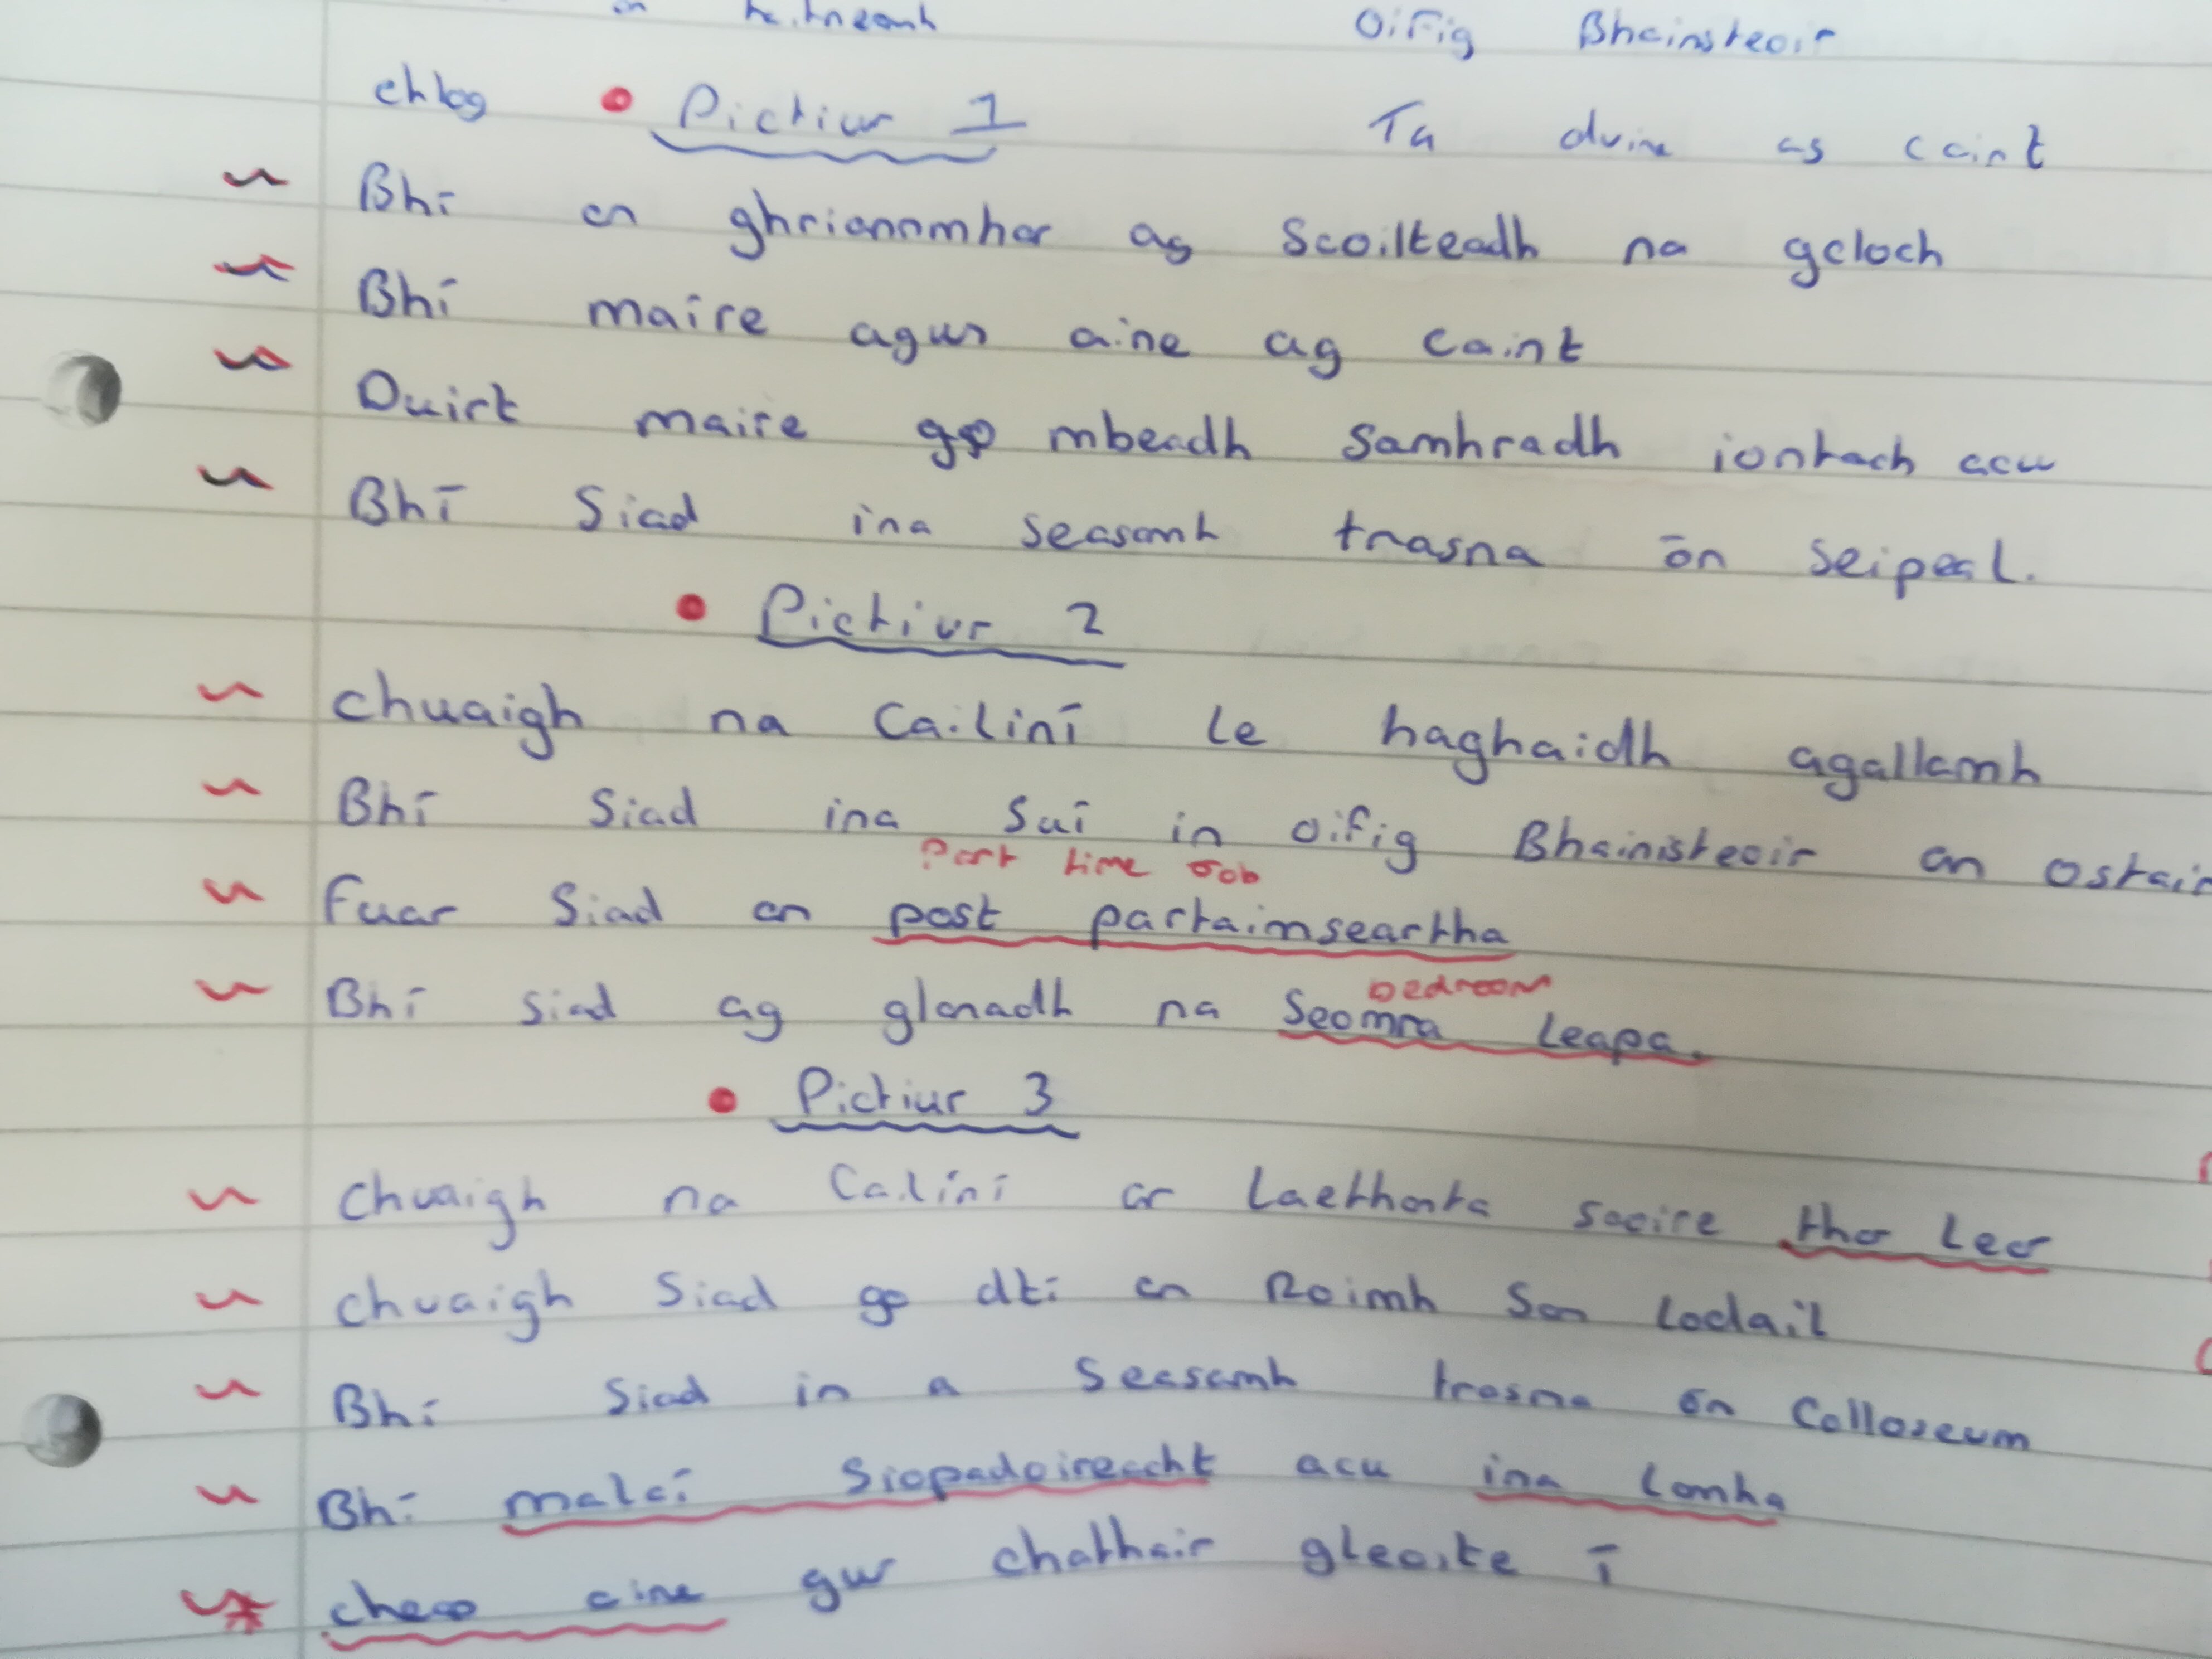 in taitneamh Oifig Bhainsteoir
chlog Pictiur 1 Ta duine as caint
Bhí an ghriannmhar ag Scoilteadh na gcloch
Bhí maire agus aine ag caint
Duirt maire go mbeadh samhradh iontach acu
Bhí Siad ina seasamh trasna ón seipeal.
Pictiur 2
chuaigh na Cailiní le haghaidh agallamh
Bhí Siad ina Suí in oifig Bhainisteoir an ostain
Part time Job
Fuar Siad an post partaimseartha
bedroom
Bhí siad ag glanadh na Seomra leapa.
Pictiur 3
chuaigh na Cailíní ar Laethanta saoire thar Lear
chuaigh Siad go dtí an Roimh San Iodail
Bhí Siad in a Seasamh trasna ón Colloseum
Bhí malaí Siopadoireacht acu ina lamha
cheap aine gur chathair gleoite í